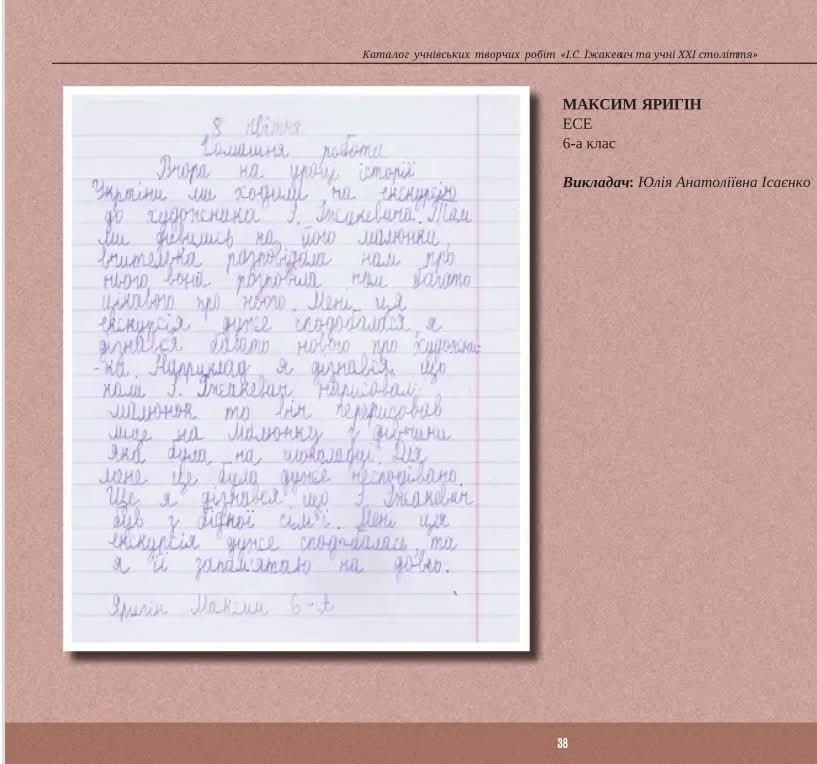 Каталог учнівських творчих робіт «І.С. Їжакевич та учні XXI століття»
МАКСИМ ЯРИГІН
ЕСЕ
6-а клас
Викладач: Юлія Анатоліївна Ісаєнко
8 квітня
Домашня робота
Вчора на уроці історії
України ми ходили на екскурсію
до художника І. Їжакевича. Там
ми дивились на його малюнки,
вчителька розповідала нам про
нього, вона розповіла нам багато
цікавого про нього. Мені ця
екскурсія дуже сподобалася, я
дізнався багато нового про художни-
-ка. Наприклад я дізнався, що
коли І. Їжакевич нарисовал
малюнок то він перерисовав
лице на малюнку з дівчини
яка була на шоколадці. Для
мене це було дуже несподівано.
Ще я дізнався що І. Їжакевич
був з бідної сім'ї. Мені ця
екскурсія дуже сподобалась, та
я її запам'ятаю на довго.
Яригін Максим 6-А
38